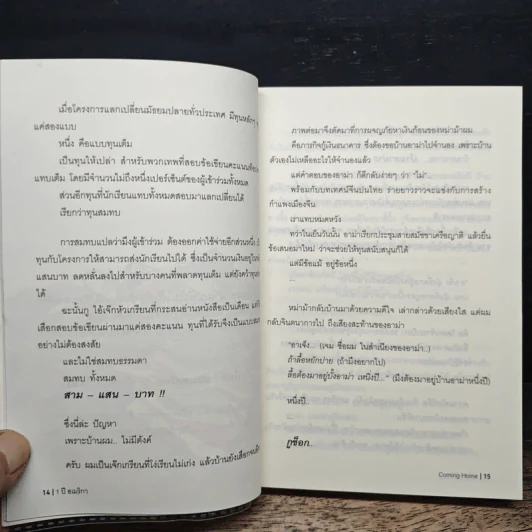 เมื่อโครงการแลกเปลี่ยนมัธยมปลายทั่วประเทศ มีทุนหลักๆ
แค่สองแบบ
หนึ่ง คือแบบทุนเต็ม
เป็นทุนให้เปล่า สำหรับพวกเทพที่สอบข้อเขียนคะแนน
แทบเต็ม โดยมีจำนวนไม่ถึงหนึ่งเปอร์เซ็นต์ของผู้เข้าร่วมทั้งหมด
ส่วนอีกทุนที่นักเรียนแทบทั้งหมดสอบมาแลกเปลี่ยนได้
เรียกว่าทุนสมทบ
การสมทบแปลว่ามึงผู้เข้าร่วม ต้องออกค่าใช้จ่ายอีกส่วนหนึ่ง
ทุนกับโครงการให้สามารถส่งนักเรียนไปได้ ซึ่งเป็นจำนวนเงินอยู่
แสนบาท ลดหลั่นลงไปสำหรับบางคนที่พลาดทุนเต็ม แต่ยังคว้า
ได้
ฉะนั้นกู ไอ้เจ๊กหัวเกรียนที่กระสนอ่านหนังสือเป็นเดือน
เสือกสอบข้อเขียนผ่านมาแค่สองคะแนน ทุนที่ได้รับจึงเป็นแบบ
อย่างไม่ต้องสงสัย
และไม่ใช่สมทบธรรมดา
สมทบ ทั้งหมด
สาม – แสน – บาท !!
ซึ่งนี่ล่ะ ปัญหา
เพราะบ้านผม.. ไม่มีตังค์
ครับ ผมเป็นเจ๊กเกรียนที่โง่เรียนไม่เก่ง แล้วบ้านยังเสือก
14 | 1 ปี อเมริกา
ภาพต่อมาจึงตัดมาที่การผจญภัยหาเงินก้อนของหม่าม้าผม
คือภารกิจกู้เงินธนาคาร ซึ่งต้องขอบ้านอาม่าไปจำนอง เพราะบ้าน
ตัวเองไม่เหลืออะไรให้จำนองแล้ว
แต่คำตอบของอาม่า ก็ตีกลับง่ายๆ ว่า "ไม่"
พร้อมกับบทเทศน์จีนปนไทย ร่ายยาวราวจะแข่งกับการสร้าง
กำแพงเมืองจีน
เราแทบหมดหวัง
ทว่าในเย็นวันนั้น อาม่าเรียกประชุมสายสมัชชาเครือญาติ แล้วยื่น
ข้อเสนอมาใหม่ ว่าจะช่วยให้ทุนสนับสนุนก็ได้
แต่มีข้อแม้ อยู่ข้อหนึ่ง
...
หม่าม้ากลับบ้านมาด้วยความดีใจ เล่ากล่าวด้วยเสียงใส แต่ผม
กลับจินตนาการไป ถึงเสียงสะท้านของอาม่า
"อาเจ็ง... (เจม ชื่อผม ในสำเนียงของอาม่า..)
ถ้าลื้อหยักปาย (ถ้ามึงอยากไป)
ลื้อต้องมาอยู่บั้งอาม่า เหนึ่งปี..." (มึงต้องมาอยู่บ้านอาม่าหนึ่งปี)
หนึ่งปี...
...
กูช็อก..
Coming Home | 15